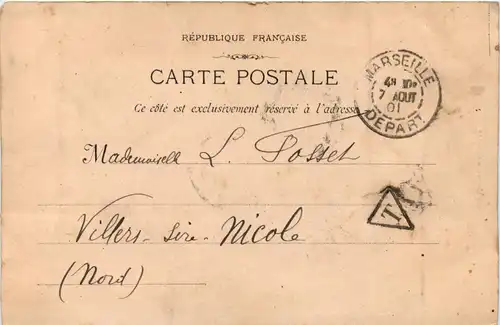 RÉPUBLIQUE FRANÇAISE
CARTE POSTALE
Ce côté est exclusivement réservé à l'adresse
MARSEILLE
7 AOUT
01
DEPART
Mademoiselle L. Posset
T
Villers-Sire-Nicole
(Nord)